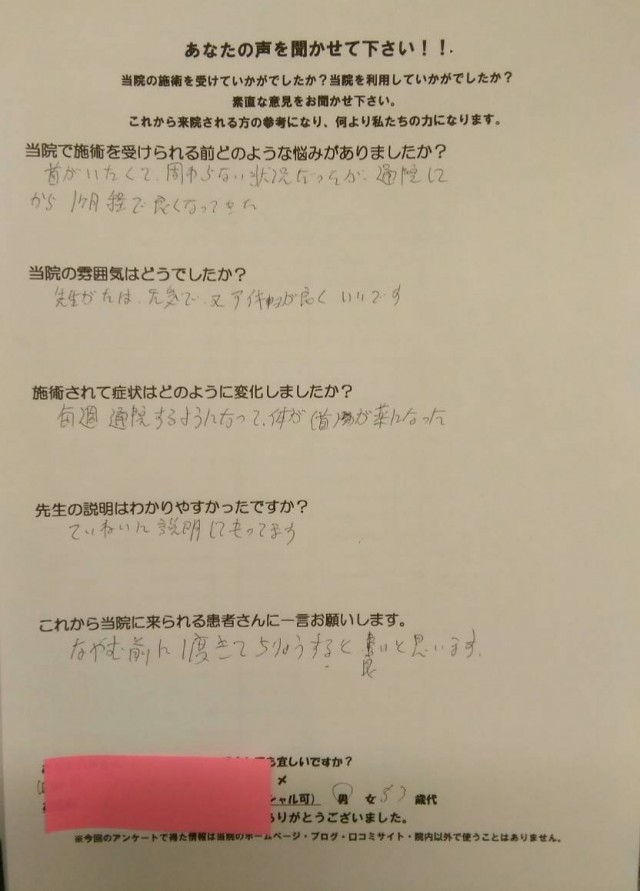 あなたの声を聞かせて下さい！！.
当院の施術を受けていかがでしたか？当院を利用していかがでしたか？
素直な意見をお聞かせ下さい。
これから来院される方の参考になり、何より私たちの力になります。
当院で施術を受けられる前どのような悩みがありましたか？
首がいたくて、周わらない状況だったが、通院して
から 1ヶ月程で良くなってきた
当院の雰囲気はどうでしたか？
先生がたは、元気で、又 アイキョウが良く いいです
施術されて症状はどのように変化しましたか？
毎週 通院するようになって、体が（首）が楽になった
先生の説明はわかりやすかったですか？
ていねいに 説明してもらってます
これから当院に来られる患者さんに一言お願いします。
なやむ前に 1度きて ちりょうすると 良いと思います。
も宜しいですか？
×
シャル可） 男 女 歳代
ありがとうございました。
※今回のアンケートで得た情報は当院のホームページ・ブログ・口コミサイト・院内以外で使うことはありません。